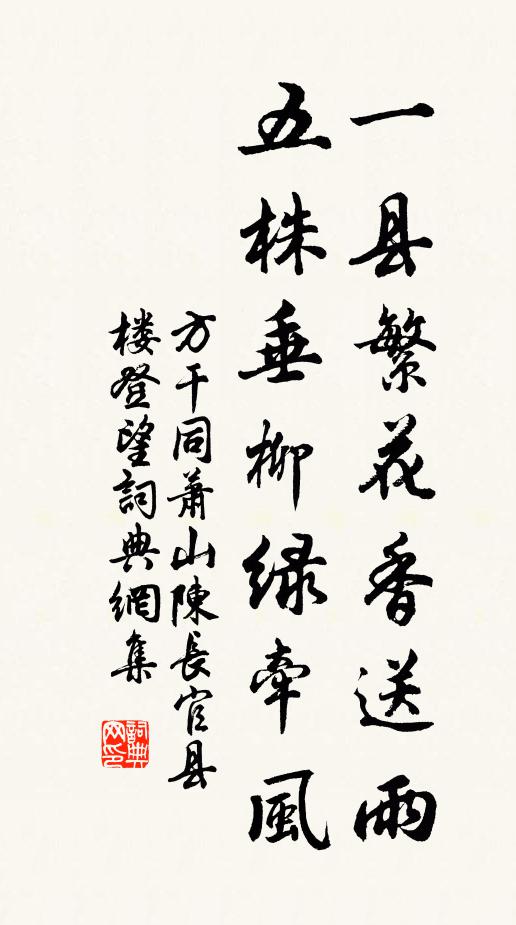 一县繁花香送雨
五株垂柳绿牵風
方干同萧山陳長官县
楼登望詞典網集
詞典网印